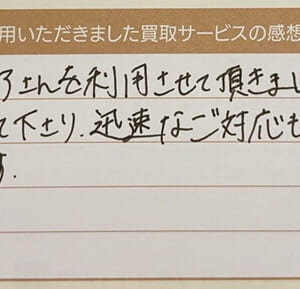 用いただきました買取サービスの感想
さんを利用させて頂きまし
て下さり、迅速なご対応も
す.